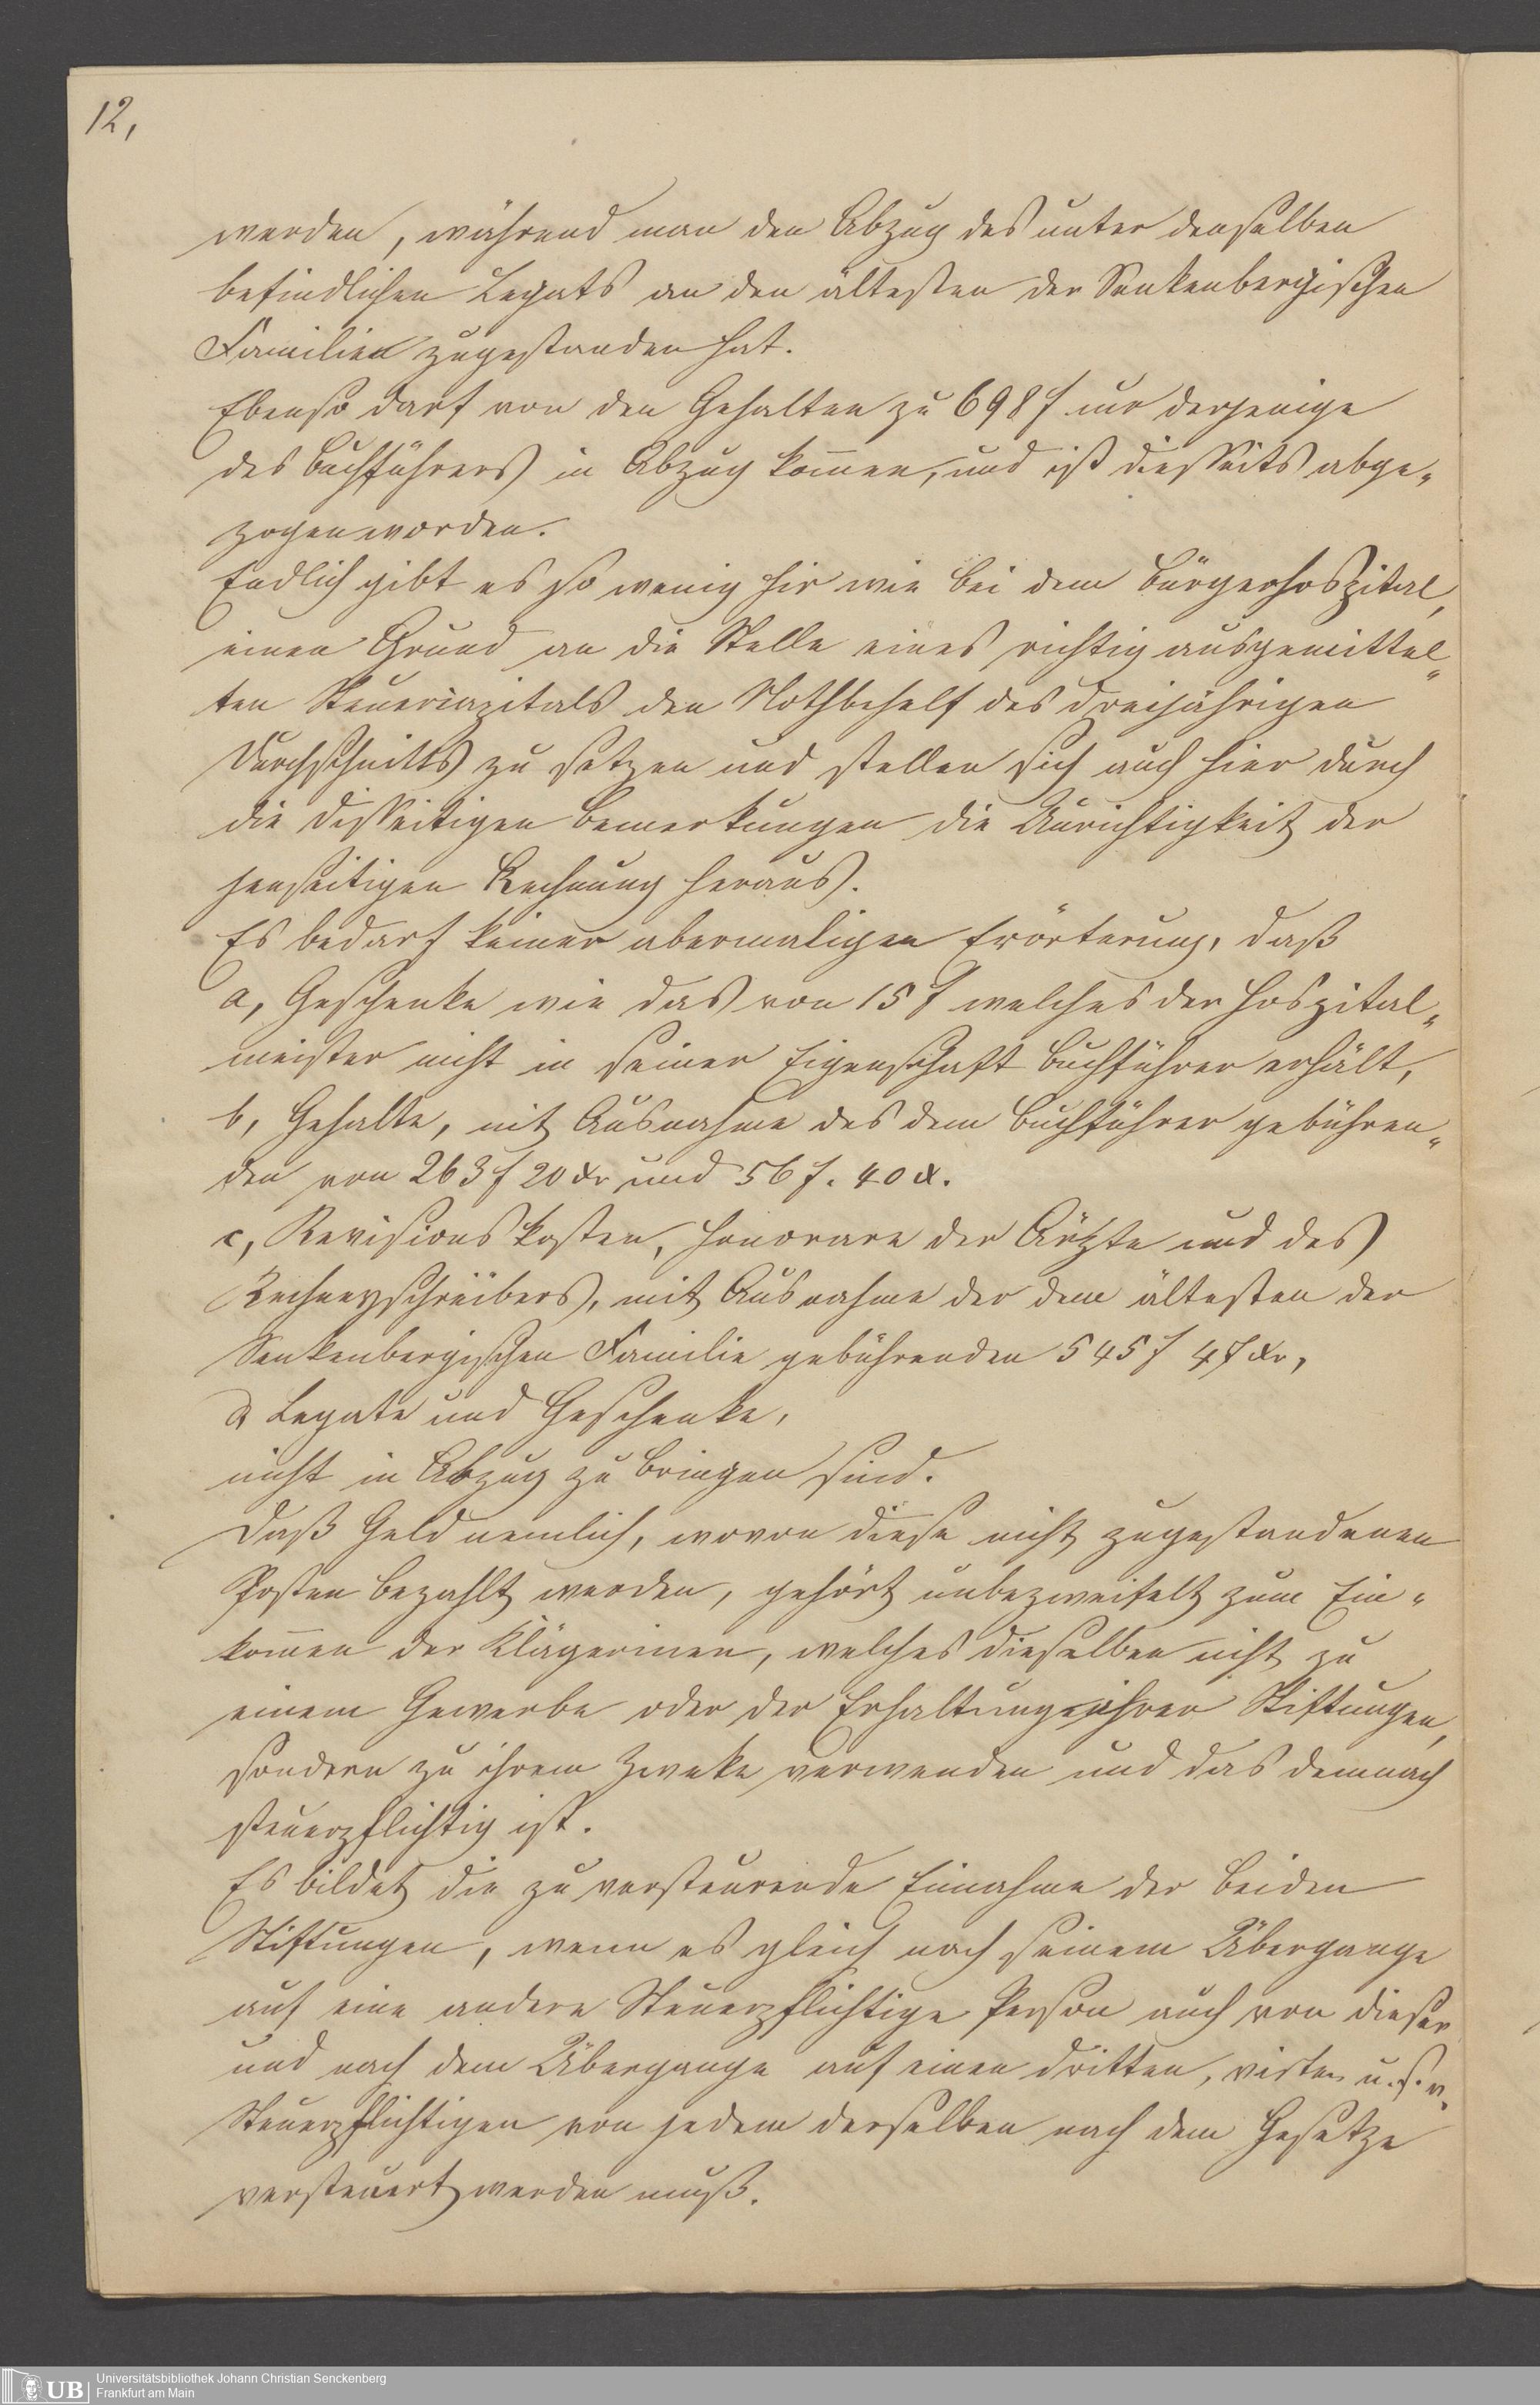 12,
werden, während man den Abzug des unter denselben
befindlichen Legats an den ältesten der Senkenbergischen
Familien zugestanden hat.
Ebenso darf von den Gehalten zu 698 f nur derjenige
des Buchführers in Abzug kommen, und ist diesseits abge„
zogen worden.
Endlich gibt es so wenig hir wie bei dem Bürgerhospital,
einen Grund an die Stelle eines richtig ausgemittel„
ten den Nothbehelf des dreijährigen
Durchschnitts zu setzen und stellen sich auch hier durch
die disseitigen Bemerkungen die Unrichtigkeit der
jenseitigen Rechnung heraus.
Es bedarf keiner abermaligen Erörterung, daß
a, Geschenke wie das von 15 f welches der Hospital„
meister nicht in seiner Eigenschaft Buchführer erhält,
b, Gehalte, mit Ausnahme des dem Buchführer gebühren„
den von 263 f 20 xr und 56 f. 40 x.
c, Revisionskosten, Honorare der Ärzte und des
Rechneyschreibers, mit Ausnahme der dem ältesten der
Senkenbergischen Familie gebührenden 545 f 47 xr,
d Legate und Geschenke,
nicht in Abzug zu bringen sind.
Daß Geld nemlich, wovon diese nicht zugestandenen
Posten bezahlt werden, gehört unbezweifelt zum Ein„
kommen der Klägerinen, welches dieselben nicht zu
einem Gewerbe oder der Erhaltung ihrer Stiftungen,
sondern zu ihrem Zweke verwenden und das demnach
steuerpflichtig ist.
Es bildet die zu versteurende Einnahme der beiden
Stiftungen, wenn es gleich nach seinem Übergange
auf eine andere Steuerpflichtige Person auch von dieser
und nach dem Übergange auf einen dritten, virten u. s. w.
Steuerpflichtigen von jedem derselben nach dem Gesetze
versteuert werden muß.
UB
Universitätsbibliothek Johann Christian Senckenberg
Frankfurt am Main